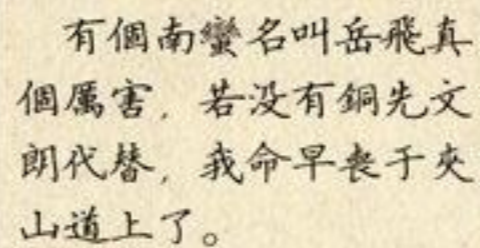 有個南蠻名叫岳飛真
個厲害，若没有銅先文
朗代替，我命早喪于夾
山道上了。